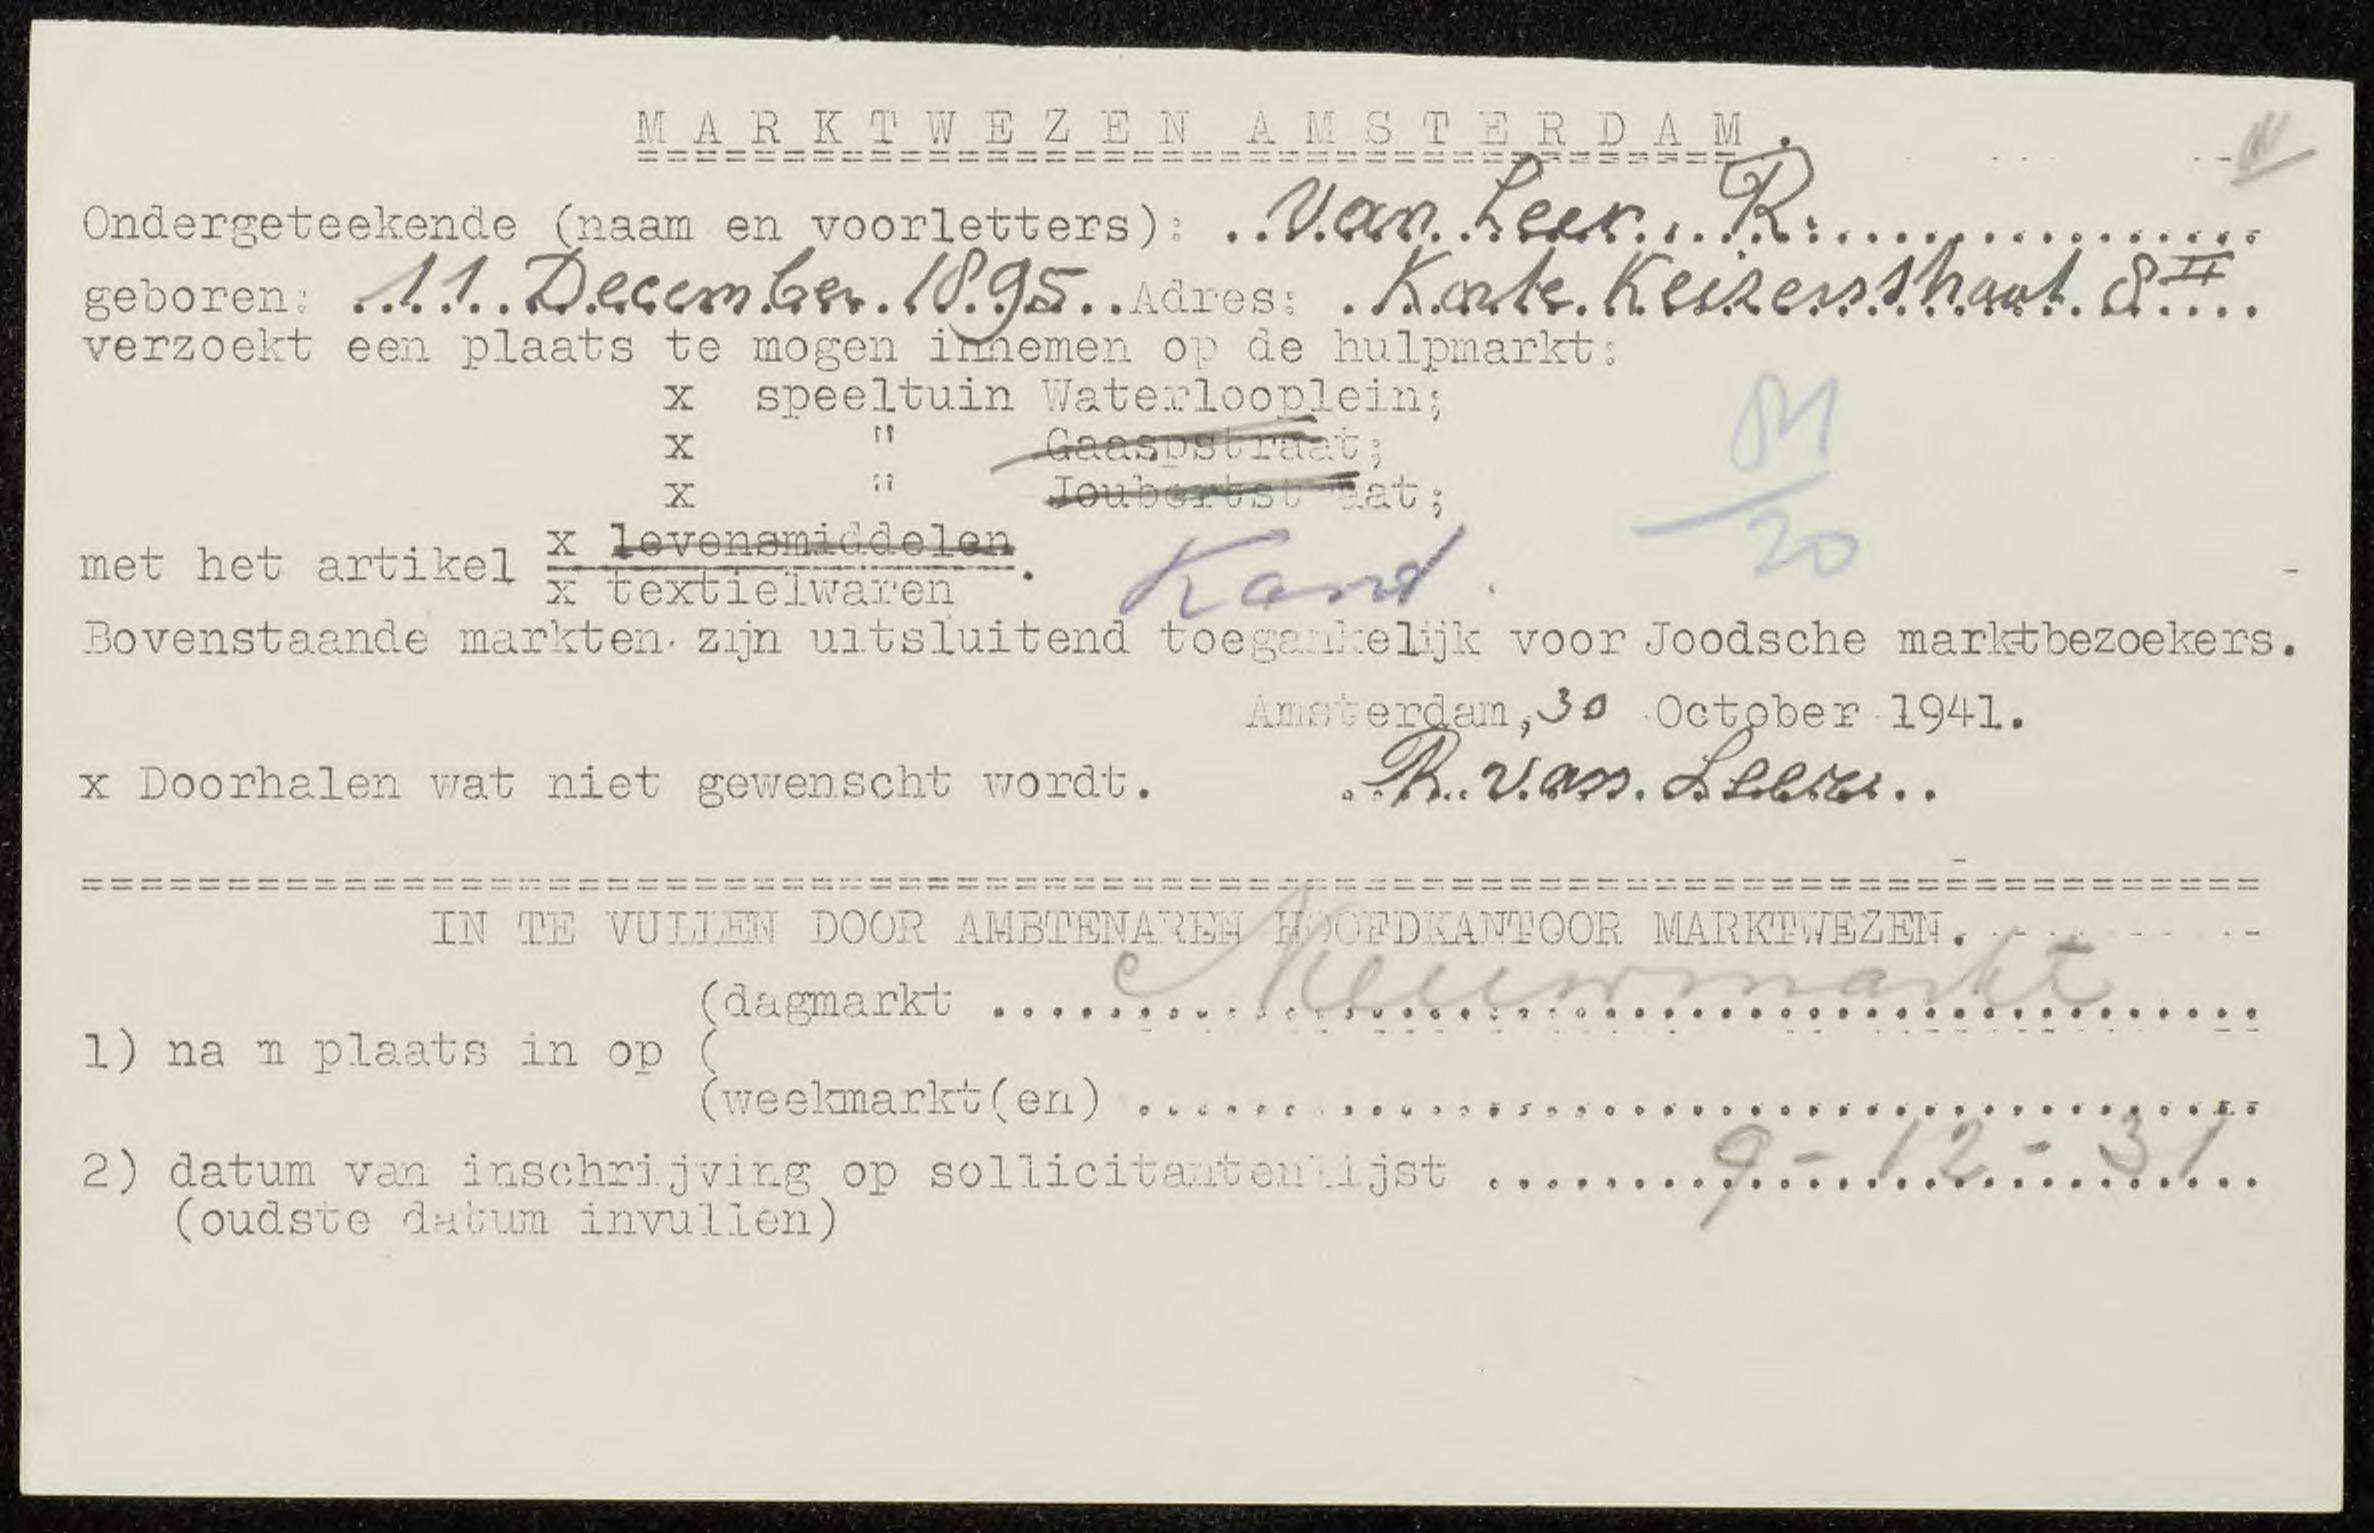 MARKTWEZEN AMSTERDAM.
Ondergeteekende (naam en voorletters): Van Leer, R.
geboren: 11 December 1895 Adres: Korte Keizersstraat 8 II
verzoekt een plaats te mogen innemen op de hulpmarkt:
x speeltuin Waterlooplein;
x " Gaaspstraat;
x " Joubertstraat;
x levensmiddelen
met het artikel
x textielwaren.
Kant.
20
Bovenstaande markten zijn uitsluitend toegankelijk voor Joodsche marktbezoekers.
Amsterdam, 30 October 1941.
x Doorhalen wat niet gewenscht wordt. R. van Leer
IN TE VULLEN DOOR AMBTENAREN HOOFDKANTOOR MARKTWEZEN.
(dagmarkt Nieuwmarkt
1) na m plaats in op (
(weekmarkt(en)
2) datum van inschrijving op sollicitantenlijst 9-12-31
(oudste datum invullen)